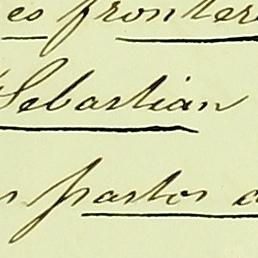 es fronter
Sebastian
r pastor a